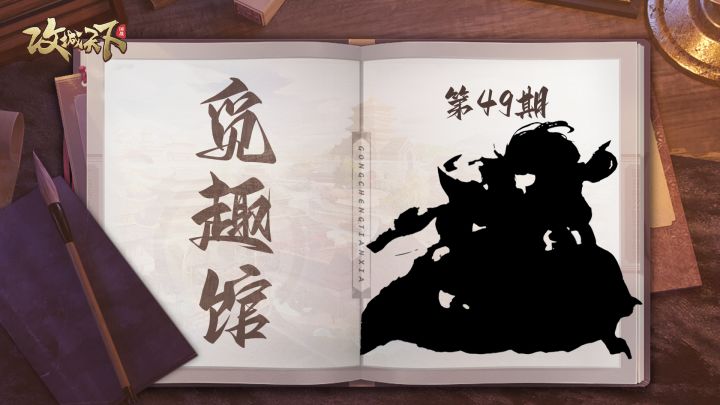 攻城天下
国战
觅趣馆
GONGCHENGTIANXIA
第49期